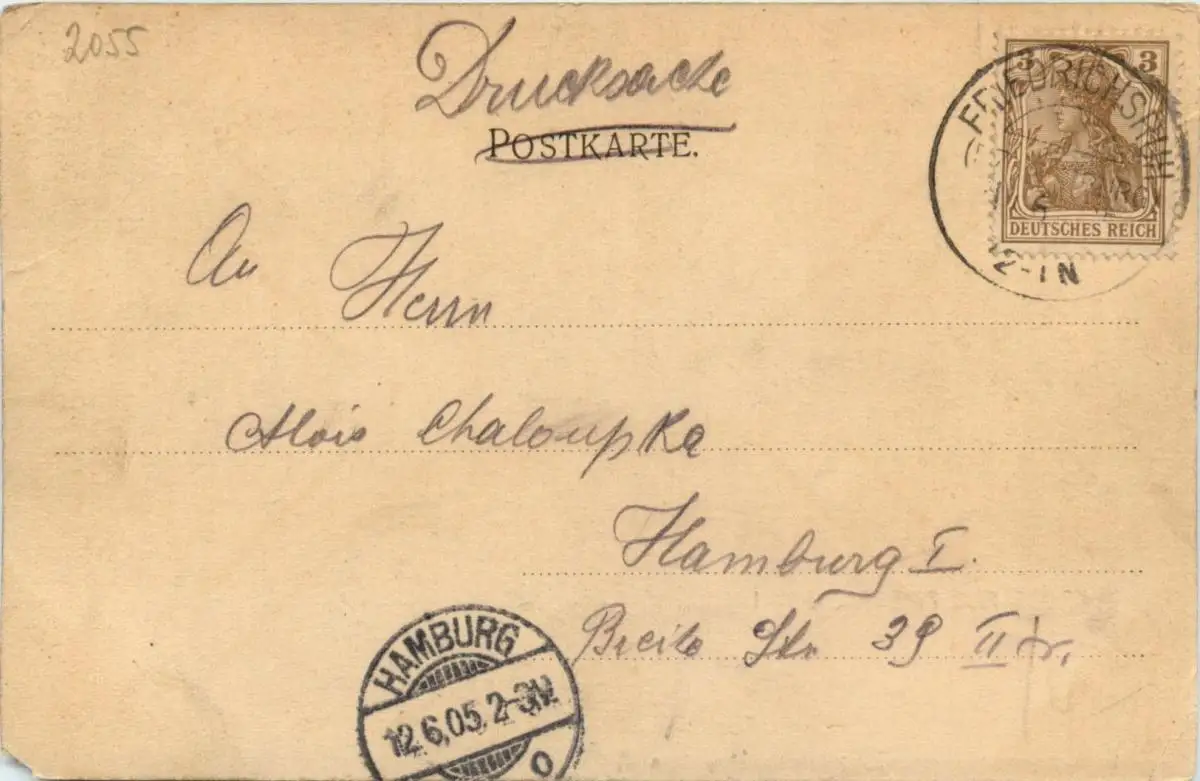 2055
Drucksache
POSTKARTE.
3 3
DEUTSCHES REICH
FRIEDRICHSRUH
2-1N
An Herrn
Alois Chaloupka
Hamburg I.
Breite Str 39 II r.
HAMBURG
12.6.05. 2-3N.
o